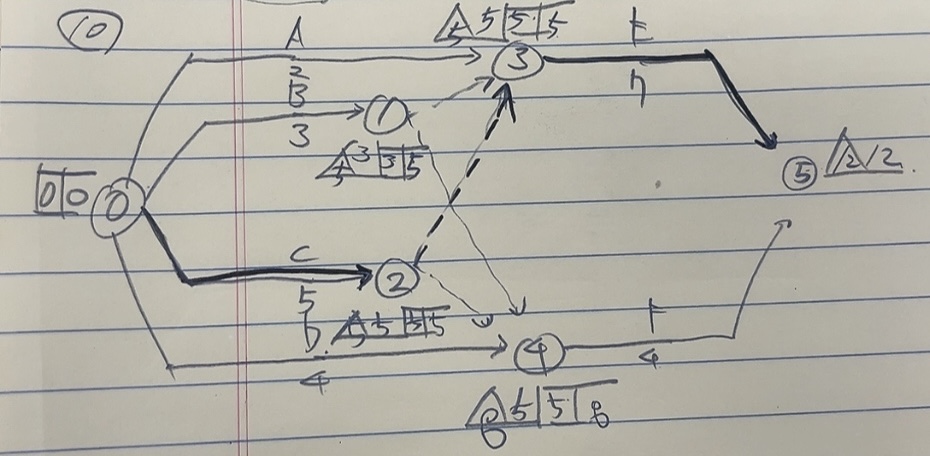 10
A
2
5 5 5 5
3
E
7
B
3
1
5 3 3 5
0 0
0
5
12 12
C
5
2
5 5 5 5
D
4
4
F
4
8 5 5 8